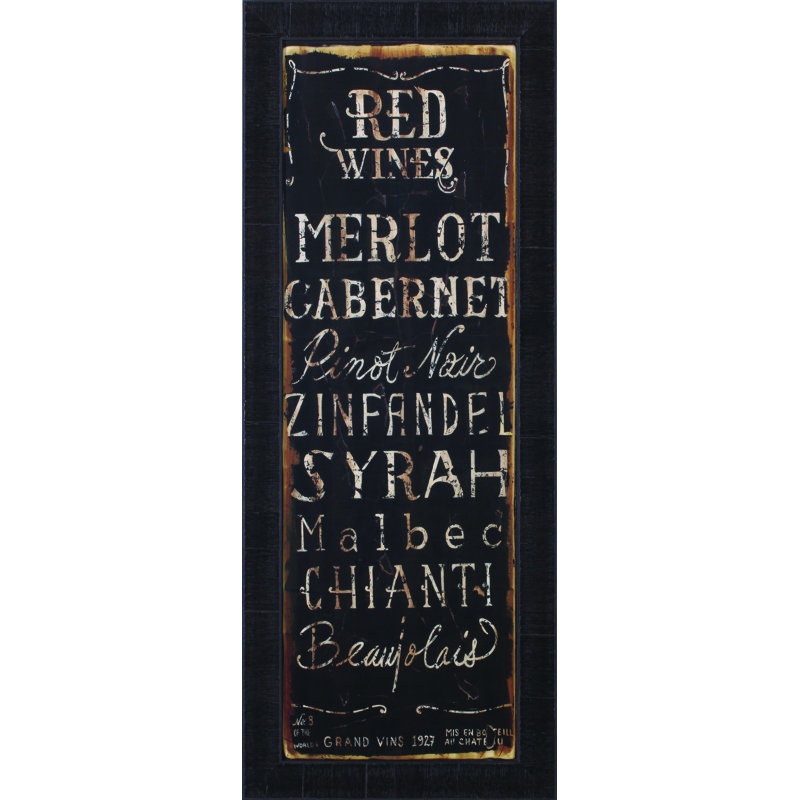 RED
WINES
MERLOT
CABERNET
Pinot Noir
ZINFANDEL
SYRAH
Malbec
CHIANTI
Beaujolais
No. 8
OF THE
WORLD'S
GRAND VINS 1927
MIS EN BOTEILL
AU CHATEAU